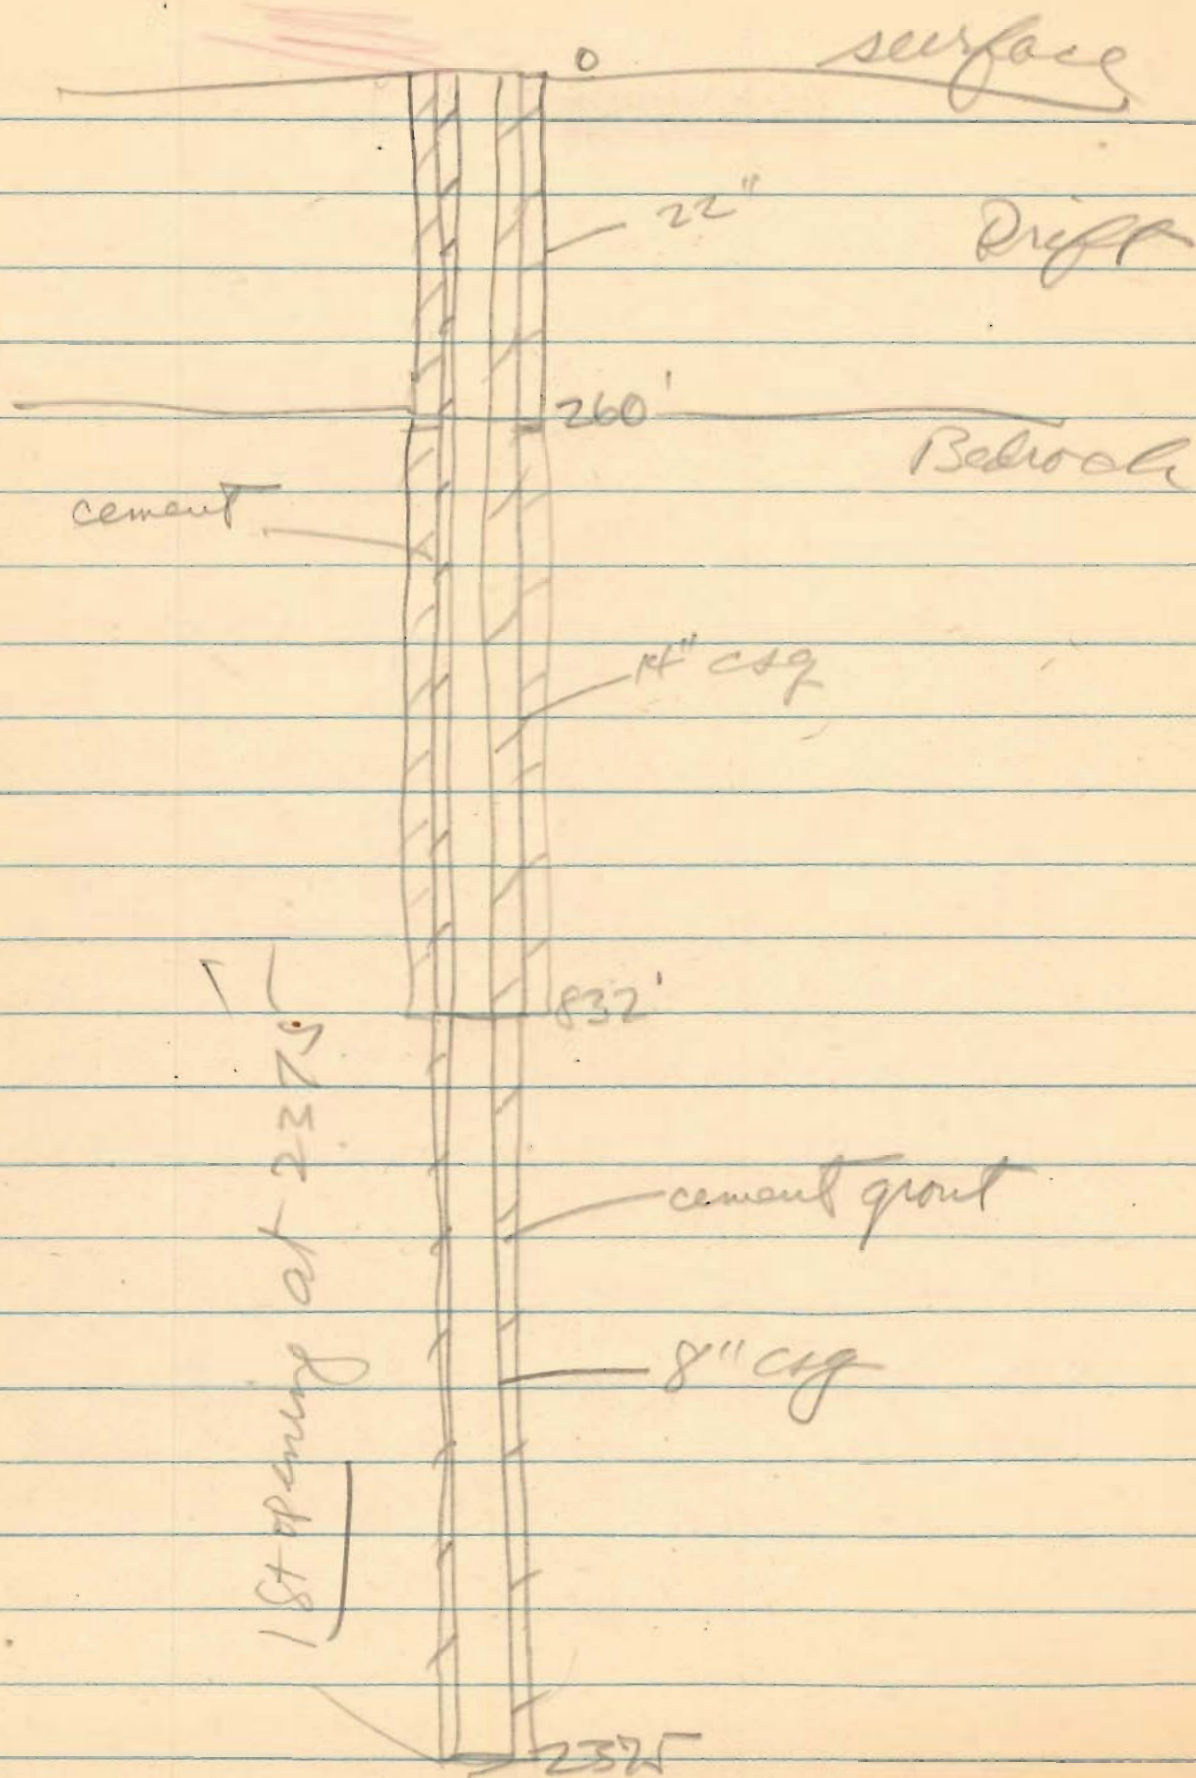 0
surface
22"
Drift
260'
Bedrock
cement
14" csg
832'
1st opening at 2375
cement grout
8" csg
2325